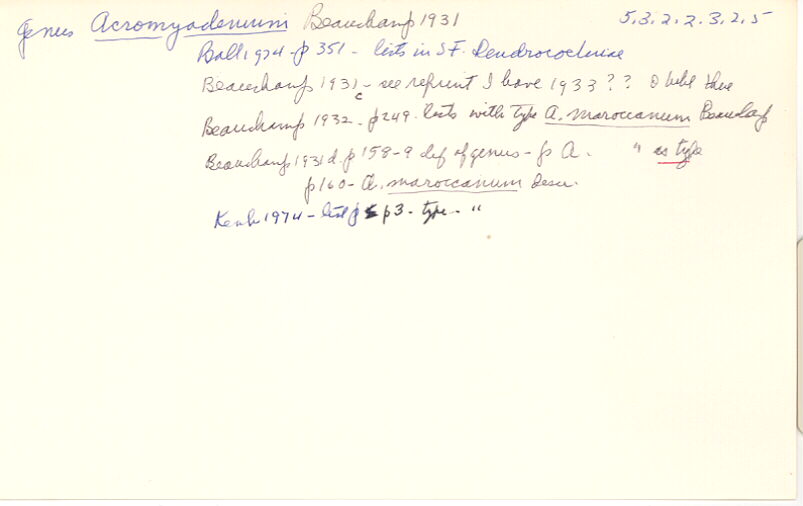 Genus Acromyadenium Beauchamp 1931 5.3.2.2.3.2.5
Ball 1974 - p 351 - lists in SF. Dendrocoelinae
Beauchamp 1931c - see reprint I have 1933 ??
Beauchamp 1932 - p 249 - lists with type A. maroccanum Beauchamp
Beauchamp 1931d. p 158-9 def of genus - A. " as type
p 160 - A. maroccanum Descr.
Kenk 1974 - list p 3 - type - "